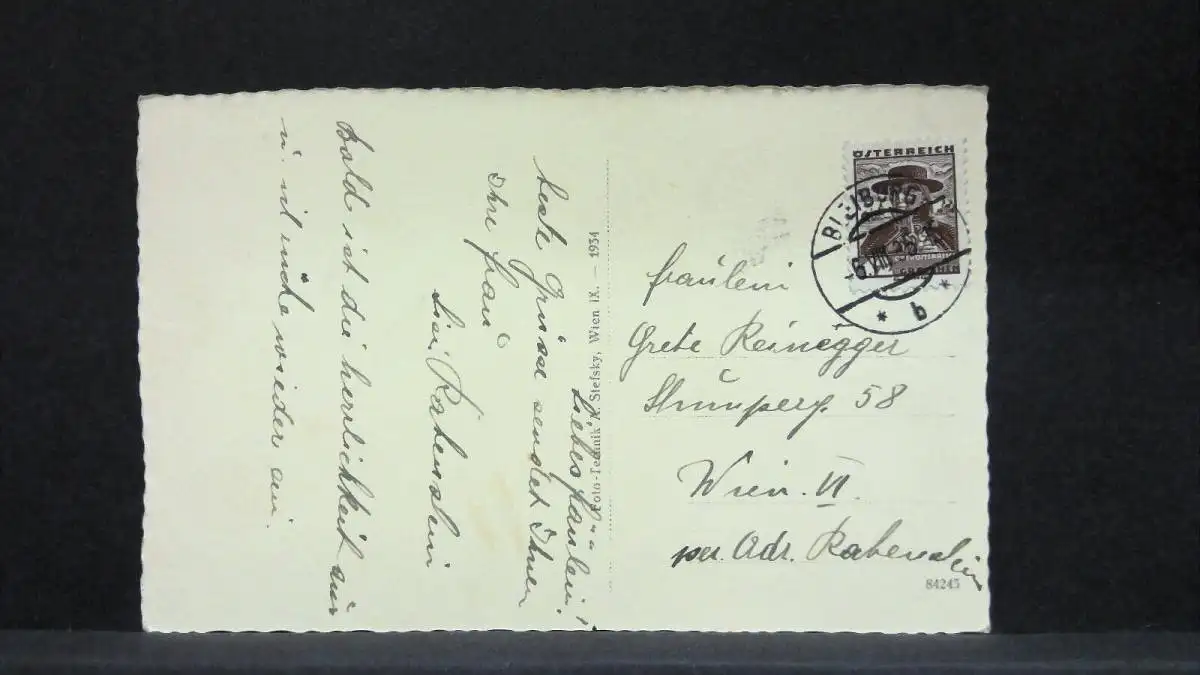 Liebes Fräulein!
beste Grüsse sendet Ihnen
Ihre Frau
Rabenstein
Bald ist die herrlichkeit aus
u. ich rücke wieder ein.
Foto-Technik A. Stefsky, Wien IX. — 1934
ÖSTERREICH
BLEIBURG
-6.VIII.35
* b *
Fräulein
Grete Reinegger
Stumperg. 58
Wien. VI.
per Adr. Rabenstein
84245